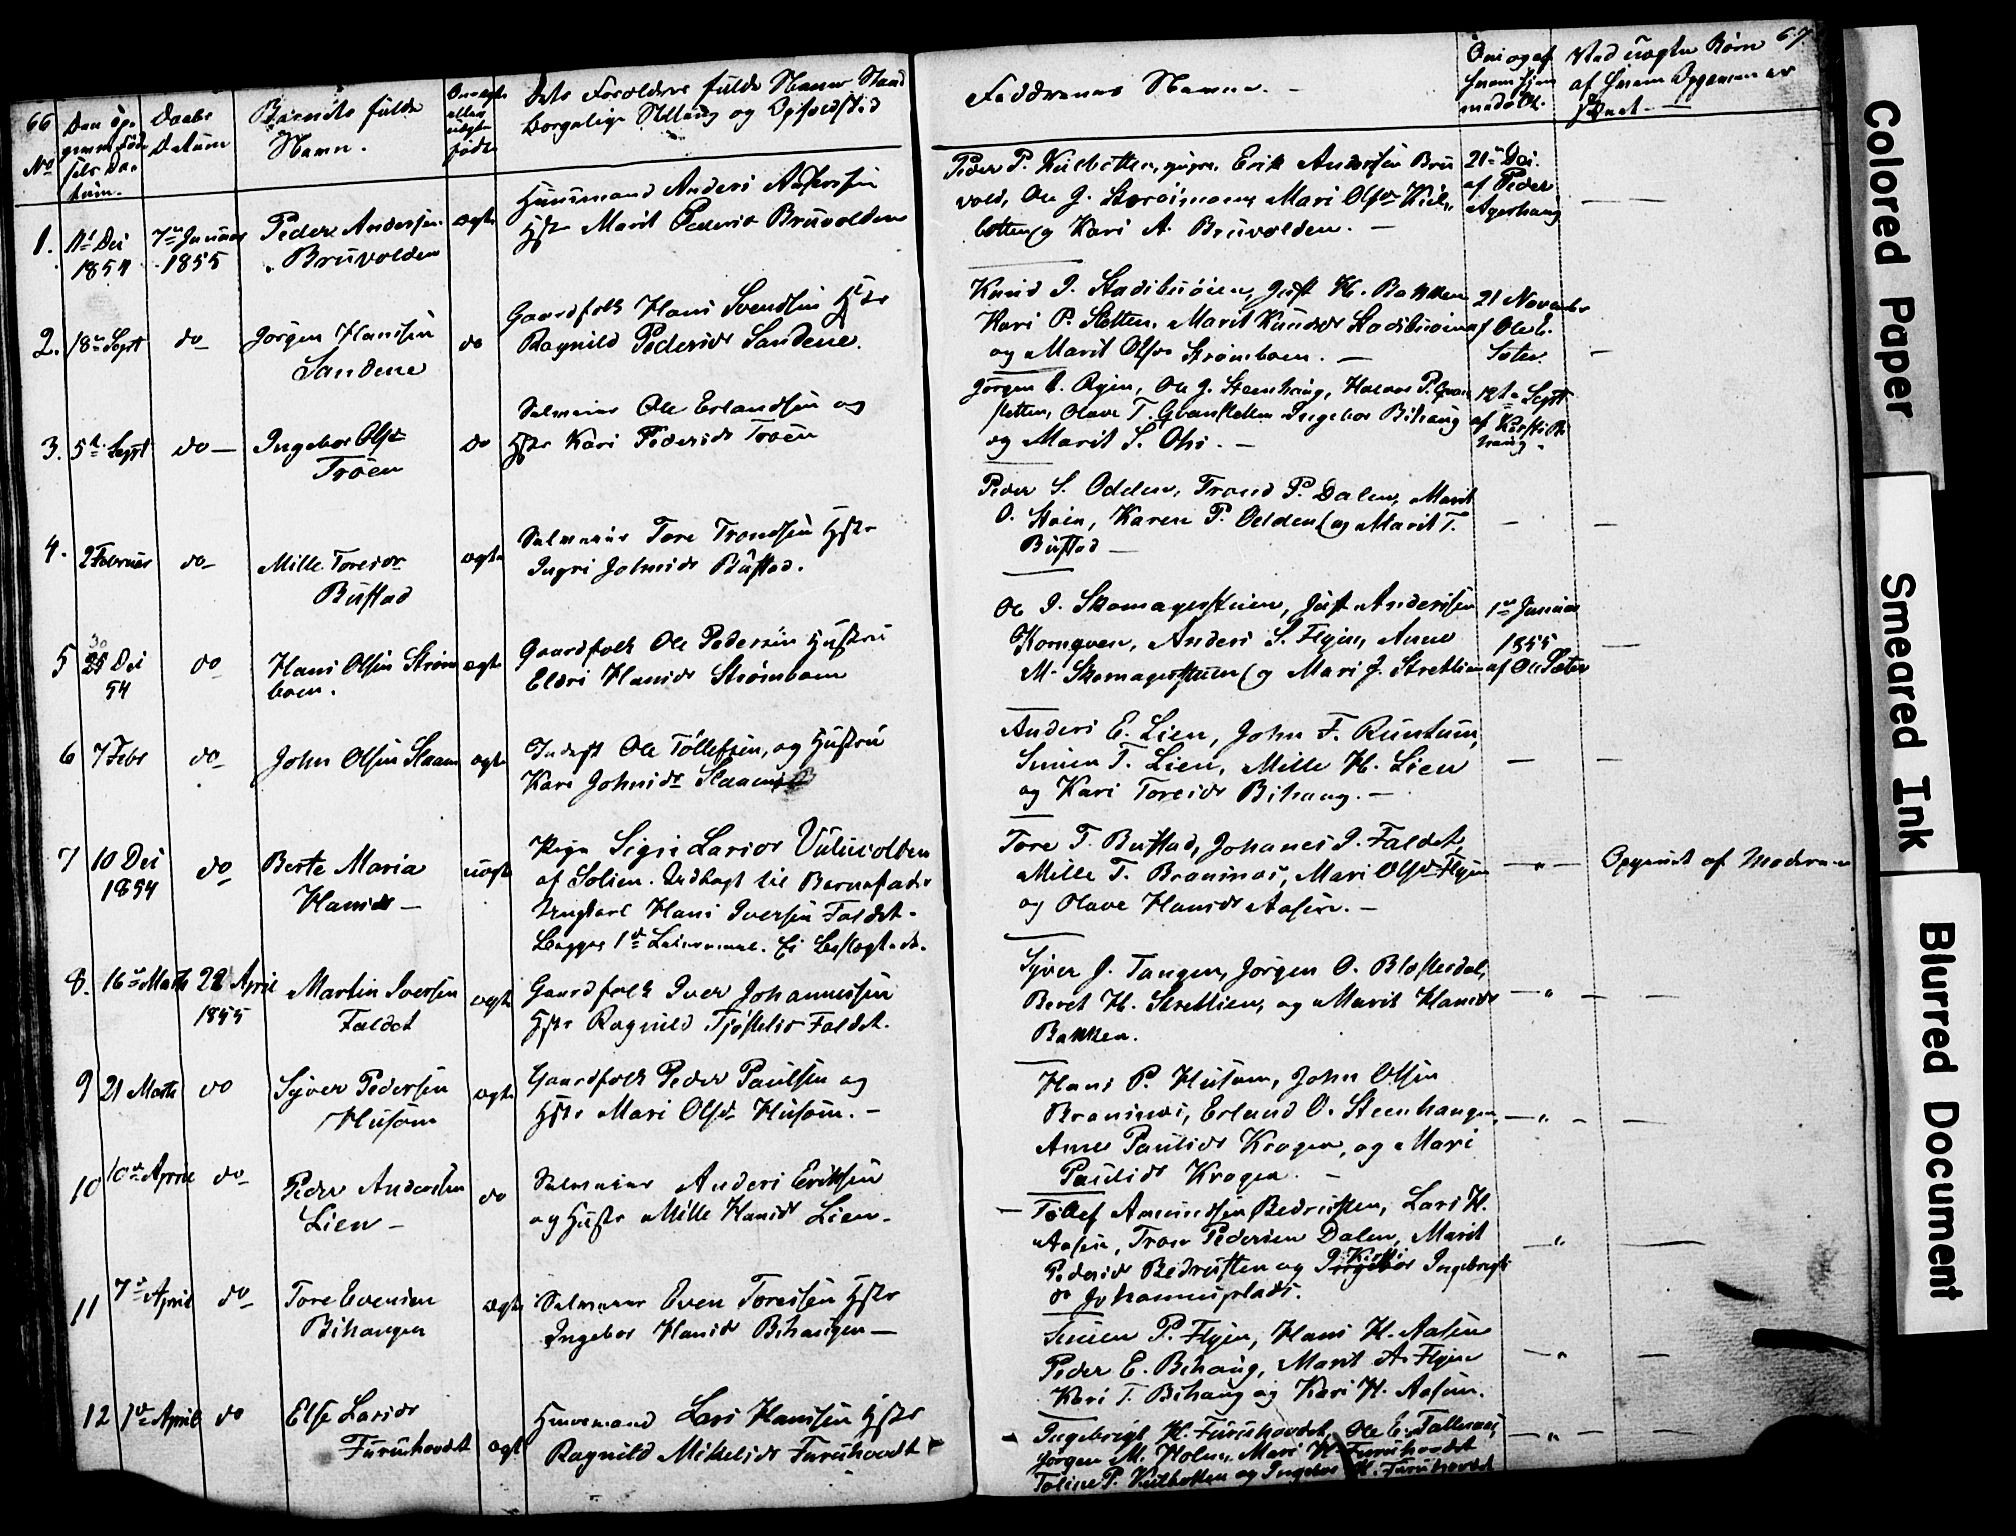 66
No
Den op-
Daabs
Datum
Barnets fulde
Navn.
eller
uægte
født
Dets Forældres fulde Navne Stand
borgelige Stilling og Opholdsted
1.
Dec
1854
7de Januar
1855
Peder Andersen
Bruvolden
ægte
Huusmand Anders Andersen
Hstr Marit Pedersdr Bruvolden
2.
18de Sept
do
Jørgen Hansen
Sandene
do
Gaardfolk Hans Svendsen Hstr
Ragnild Pedersdr Sandene.
3.
5te Sept
do
Ingebor Olsdr
Troen
do
Selveier Ole Erlandsen og
Hstr Kari Pedersdr Troen
4.
2 Februar
do
Mille Toresdr
Bustad
ægte
Selveier Tore Trondsen Hstr
Ingri Johnsdr Bustad.
5
30
Dec
54
do
Hans Olsen Strøm
boen.
ægte
Gaardfolk Ole Pedersen Hustru
Eldri Hansdr Strømboen
6
7 Febr
do
John Olsen Slaaen
ægte
Inderst Ole Tollefsen, og Hustru
Kari Johnsdr Slaaen
7
10 Dec
1854
do
Berte Maria
Hansdr
uægte
Pige Sigri Larsdr
af Solien. Udlagt til Barnefader
Ungkarl Hans Iversen Faldet.
Begges 1ste Leiermaal. Ei beslægtede.
8.
16de Marts
22 April
1855
Martin Iversen
Faldet
ægte
Gaardfolk Iver Johannessen
Hstr Ragnild Tjøstelsdr Faldet.
9
21 Marts
do
Syver Pedersen
Husom
ægte
Gaardfolk Peder Paulsen og
Hstr Mari Olsdr Husom.
10
10de April
do
Peder Andersen
Lien
do
Selveier Anders Eriksen
og Hustr Mille Hansdr Lien.
11
7de April
do
Tore Evensen
Bihaugen
ægte
Selveier Even Toresen Hstr
Ingebor Hansdr Bihaugen
12
1de April
do
Else Larsdr
Furuhovdet
ægte
Huusmand Lars Hansen Hstr
Ragnild Mikelsdr Furuhovdet
Faddrenes Navne.
Om og af
hvem hjem
medøbt.
Ved uægte Børn
af hvem Opgaven er
skeet.
67
Peder P. Kielbotten, Erik Andersen Bru
vold, Ole J. Mari Olsdr Kiel
botten og Kari A. Bruvolden.
21de Dec.
af Peder
Agerhaug
Knud J. Stadsbuøien, Just H. Bakken
Kari P. Sletten, Marit Knudsdr Stadsbuøien
og Marit Olsdr Strømboen.
21 November
af Ole E.
Sæter
Jørgen E. Ryen, Ole J. Steenhaug, Halvor P. Gran
sletten, Olave T. Gransletten Ingebor Bihaug
og Marit S.
12te Sept
af Kersti Bi
haug.
Peder S. Odden, Trond P. Dalen, Marit
O. Stuen, Karen P. Odden og Marit T.
Bustad
Ole J. Skomagerstuen, Just Andersen
Kornqven, Anders S. Flyen, Anne
M. Skomagerstuen og Mari J. Stretlien
1de Januar
1855
af Ole Sæter
Anders E. Lien, John F. Runtum,
Simen T. Lien, Mille H. Lien
og Kari Toresdr Bihaug.
Tore T. Bustad, Johanes I. Faldet,
Mille T. Brænnæs, Mari Olsdr Flyen
og Olave Hansdr Aasen.
Opgivet af Moderen
Syver J. Tangen, Jørgen O. Blæsterdal,
Beret H. Stretlien, og Marit Hansdr
Bakken.
Hans P. Husom, John Olsen
Brænnæs, Erland O. Steenhaugen,
Ane Paulsdr Krogen, og Mari
Paulsdr Krogen.
Tollef Amundsen Bedrusten, Lars H.
Aasen, Tron Pedersen Dalen, Marit
Pedersdr Bedrusten og Kirsti Ingebrigts
dr Johannesplads.
Simen P. Flyen, Hans H. Aasen
Peder E. Bihaug, Marit A. Flyen
Kari T. Bihaug og Kari H. Aasen.
Ingebrigt H. Furuhovdet, Ole E. Tallernæs,
Jørgen M. Holen, Mari H. Furuhovdet
Toline P. Kielbotten og Ingebor H. Furuhovdet
Colored Paper
Smeared Ink
Blurred Document